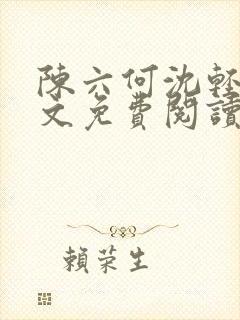 陳六何沈輕
文免費閱讀
賴荣生